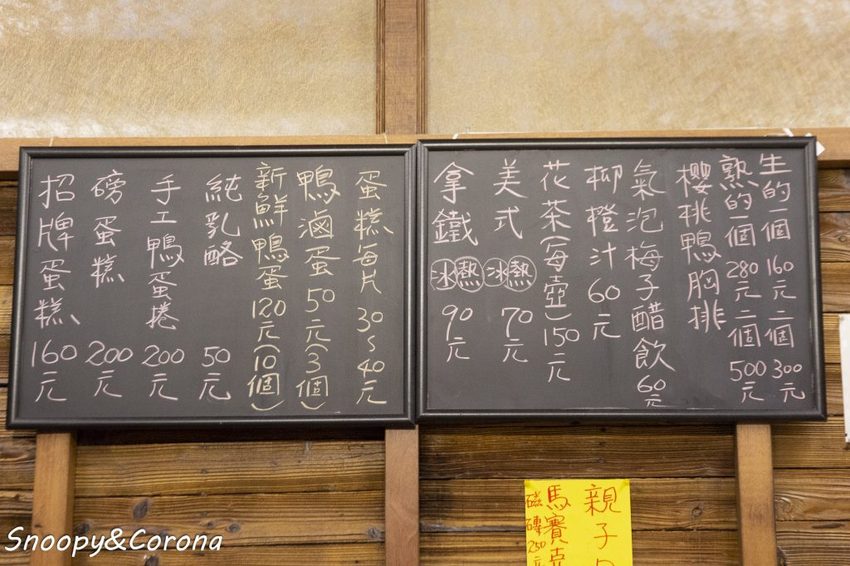 生的一個160元二個300元
熟的一個280元二個500元
櫻桃鴨胸排
氣泡梅子醋飲60元
柳橙汁60元
花茶(每壺)150元
美式冰熱70元
拿鐵冰熱90元
蛋糕每片30~40元
鴨滷蛋50元(3個)
新鮮鴨蛋120元(10個)
純乳酪50元
手工鴨蛋捲200元
磅蛋糕200元
招牌蛋糕、160元
親子
馬賽克
磁磚250
Snoopy&Corona